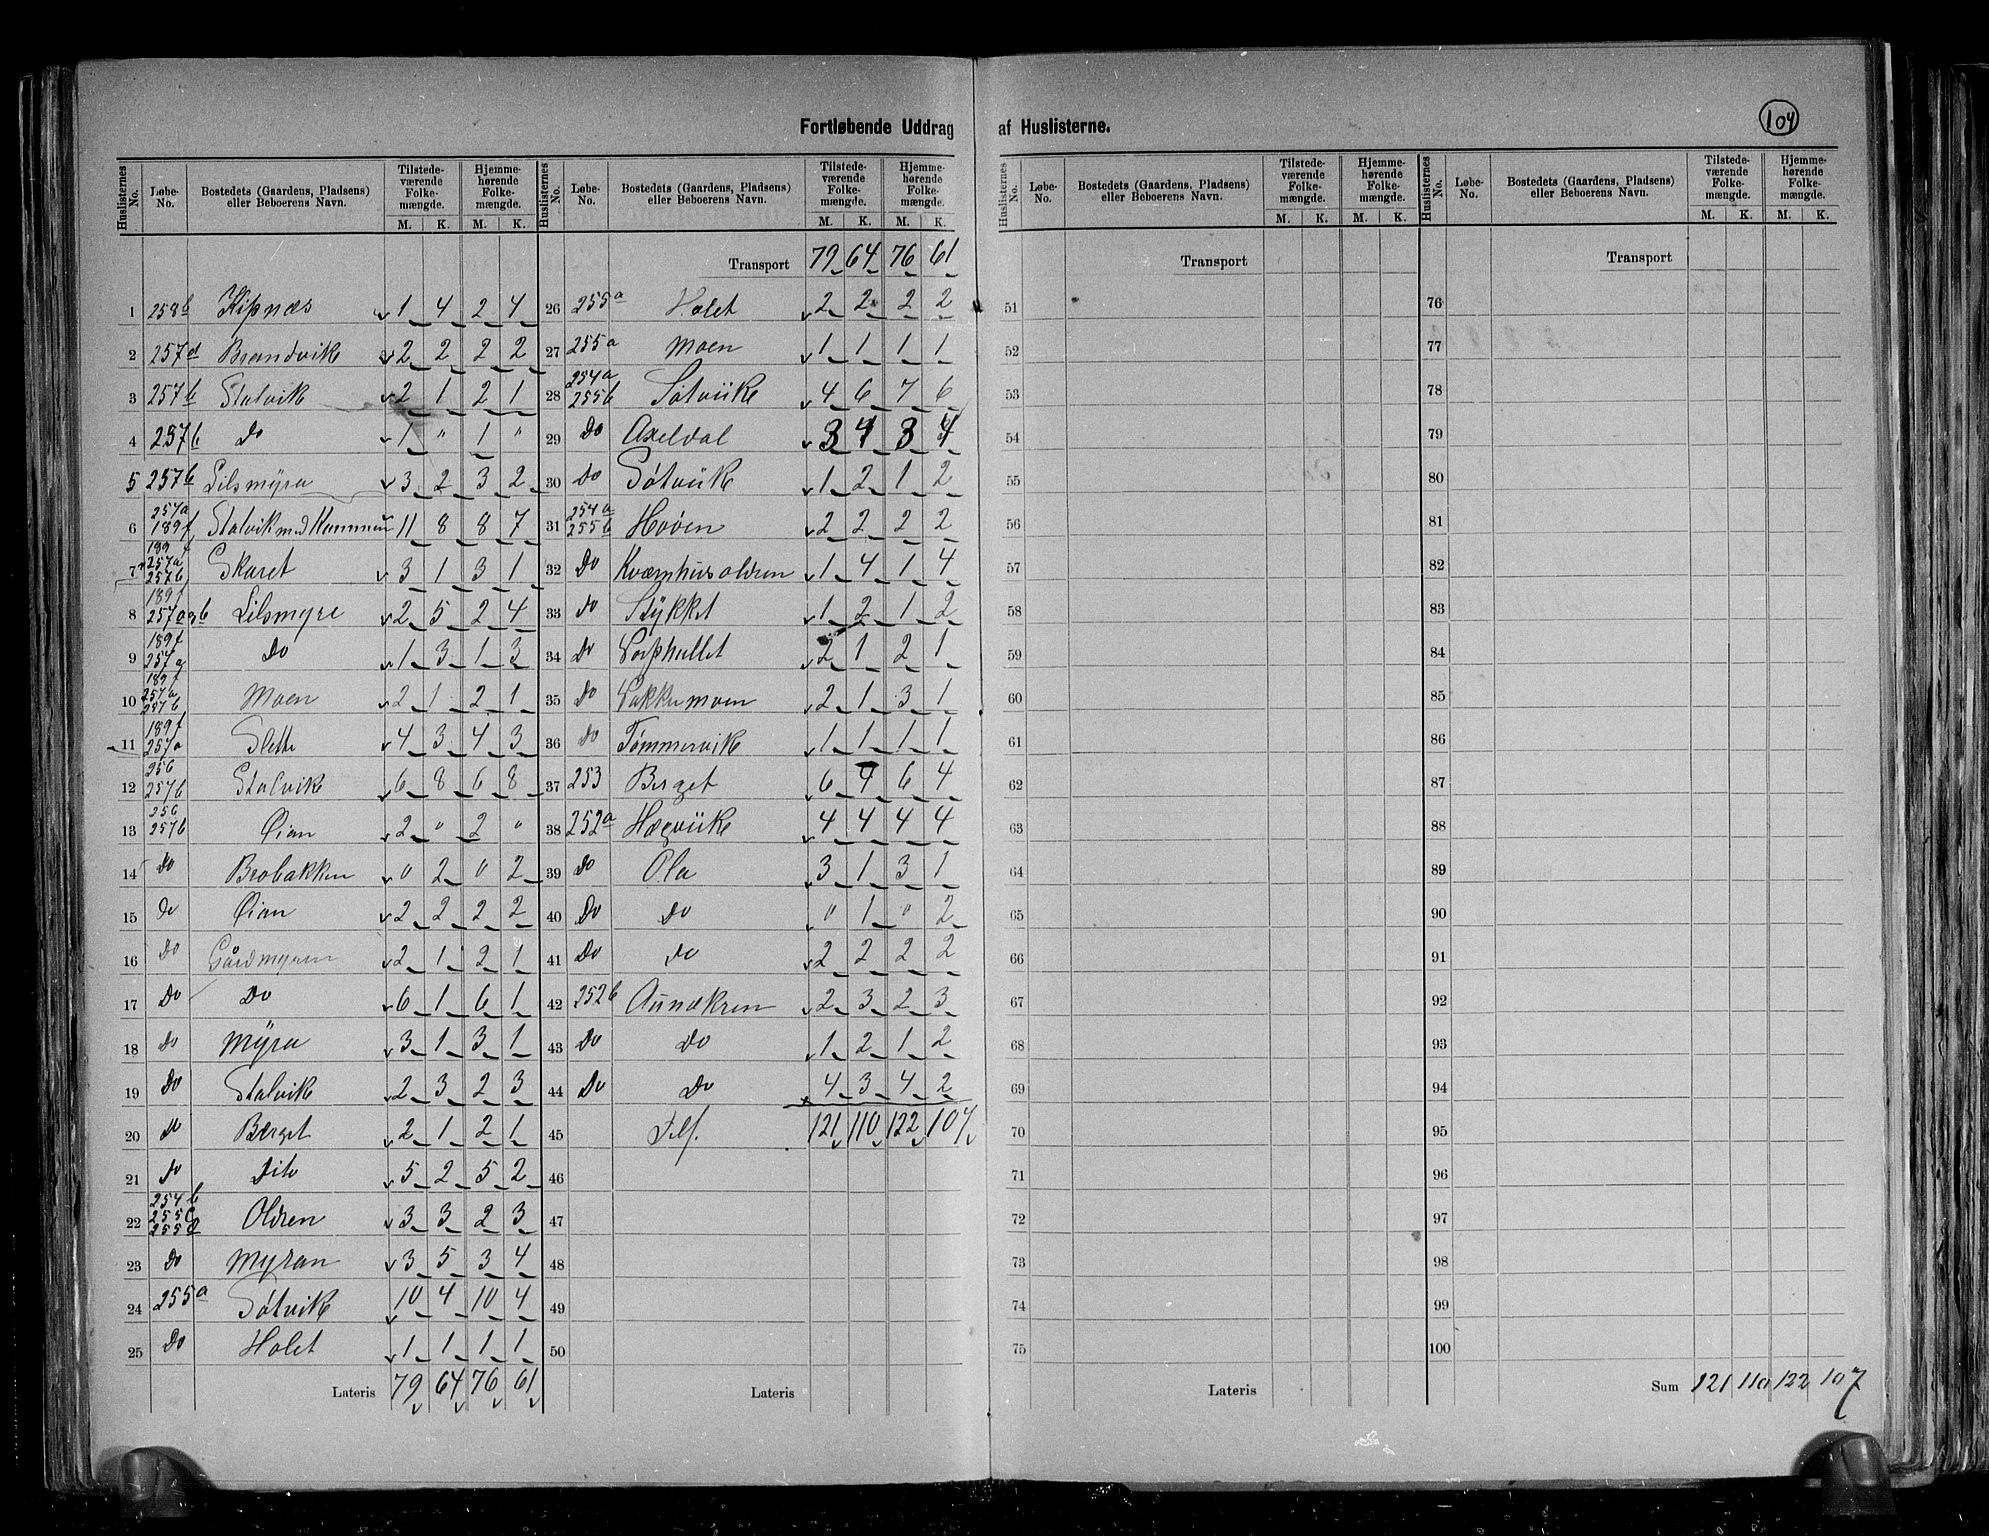 Fortløbende Uddrag af Huslisterne.
104
Huslisternes No. Løbe-No. Bostedets (Gaardens, Pladsen) eller Beboerens Navn. Tilstedeværende Folkemængde. M. K. Hjemmehørende Folkemængde. M. K.
Huslisternes No. Løbe-No. Bostedets (Gaardens, Pladsen) eller Beboerens Navn. Tilstedeværende Folkemængde. M. K. Hjemmehørende Folkemængde. M. K.
Huslisternes No. Løbe-No. Bostedets (Gaardens, Pladsen) eller Beboerens Navn. Tilstedeværende Folkemængde. M. K. Hjemmehørende Folkemængde. M. K.
Huslisternes No. Løbe-No. Bostedets (Gaardens, Pladsen) eller Beboerens Navn. Tilstedeværende Folkemængde. M. K. Hjemmehørende Folkemængde. M. K.
1 258b Kipnæs 1 4 2 4
2 257d Brandvik 2 2 2 2
3 257b Stalvik 2 1 2 1
4 257b Do 1 " 1 "
5 257b Lilsmyra 3 2 3 2
6 257a 189f Stalvik med 11 8 8 7
7 189f 257a 257b Skaret 3 1 3 1
8 189f 257a&b Lilsmyre 2 5 2 4
9 189f 257a Do 1 3 1 3
10 189f 257a 257b Moen 2 1 2 1
11 189f 257a Slette 4 3 4 3
12 256 257b Stalvik 6 8 6 8
13 256 257b Øian 2 " 2 "
14 Do Brobakken " 2 " 2
15 Do Øian 2 2 2 2
16 Do Gårdmyren 2 1 2 1
17 Do Do 6 1 6 1
18 Do Myra 3 1 3 1
19 Do Stalvik 2 3 2 3
20 Do Berget 2 1 2 1
21 Do Dito 5 2 5 2
22 254b 255c 255d Oldren 3 3 2 3
23 Do Myran 3 5 3 4
24 255a Søtvik 10 4 10 4
25 Do Holet 1 1 1 1
Lateris 79 64 76 61
Transport 79 64 76 61
26 255a Holet 2 2 2 2
27 255a Moen 1 1 1 1
28 254a 255b Søtviik 4 6 7 6
29 Do Axeldal 3 4 3 4
30 Do Søtviik 1 2 1 2
31 254a 255b Hovén 2 2 2 2
32 Do Kværnhusoldren 1 4 1 4
33 Do Stykket 1 2 1 2
34 Do 2 1 2 1
35 Do 2 1 3 1
36 Do Tømmervik 1 1 1 1
37 253 Berget 6 4 6 4
38 252a Hægviik 4 4 4 4
39 Do Ola 3 1 3 1
40 Do Do " 1 " 2
41 Do Do 2 2 2 2
42 252b Aunekren 2 3 2 3
43 Do Do 1 2 1 2
44 Do Do 4 3 4 2
45 Tils. 121 110 122 107
46
47
48
49
50
Lateris
Transport
51
52
53
54
55
56
57
58
59
60
61
62
63
64
65
66
67
68
69
70
71
72
73
74
75
Lateris
Transport
76
77
78
79
80
81
82
83
84
85
86
87
88
89
90
91
92
93
94
95
96
97
98
99
100
Sum 121 110 122 107